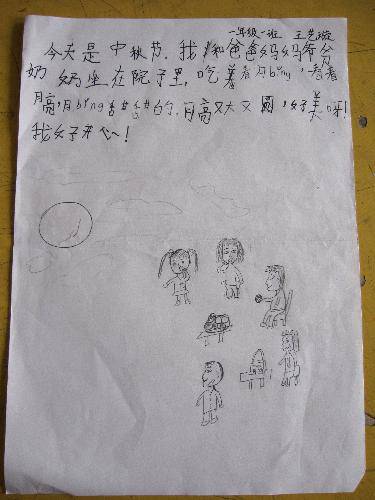 一年级一班 王艺璇
今天是中秋节.我和爸爸妈妈爷爷
奶奶坐在院子里,吃着月bǐng,看着
月亮,月bǐng甜甜的.月亮又大又圆,好美呀!
我好开心!